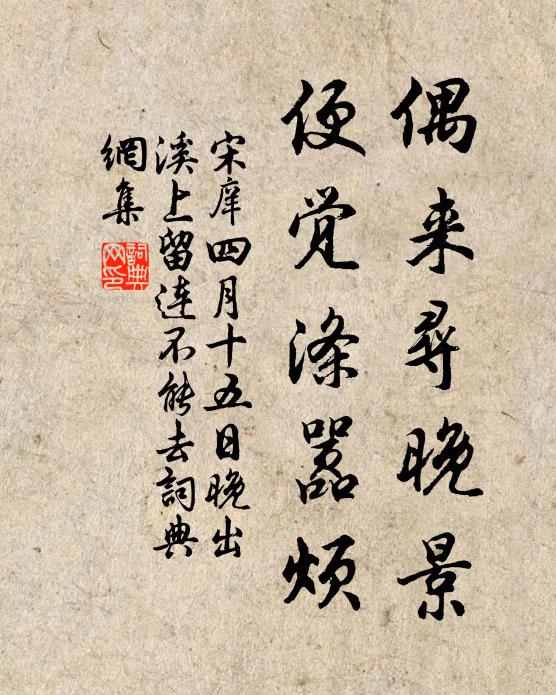 偶来尋晚景
便觉滌嚣煩
宋庠四月十五日晚出
溪上留連不能去詞典
網集
詞典
网印